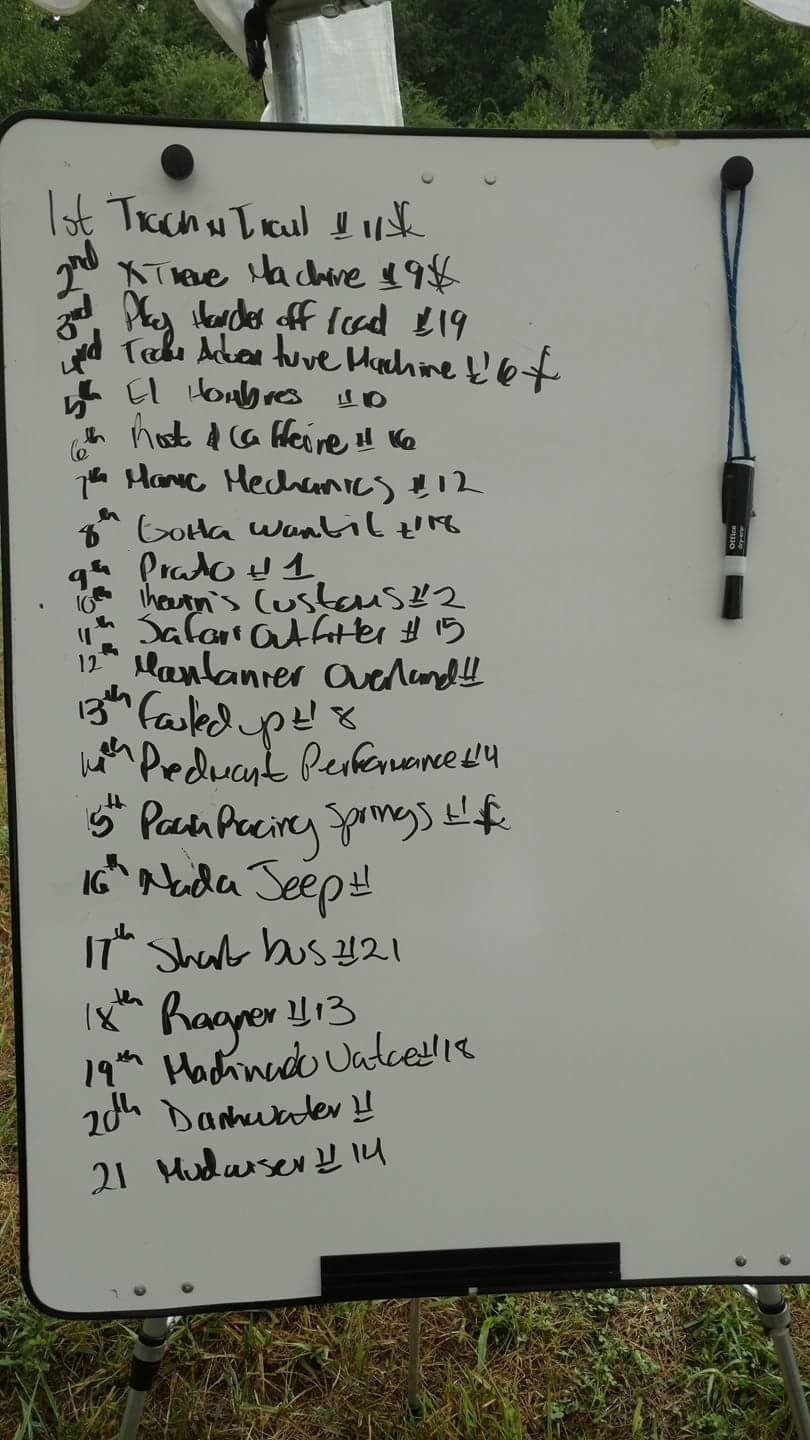 1st Trach N Trail # 11
2nd XTreme Machine #9
3rd Play Harder off road #19
4rd Team Adventure Machine # 6
5th El Hombres #10
6th Rust & Caffeine # 16
7th Manic Mechanics #12
8th Gotta want it #18
9th Prato # 1
10th Kevin's Customs #2
11th Safari Outfitter # 15
12th Mountanier Overland #
13th Failed up # 8
14th Performance #4
15th Racing Springs #
16th Nada Jeep #
17th Short bus #21
18th Ragner #13
19th #18
20th Darkwater #
21 Mudwiser # 14
Office